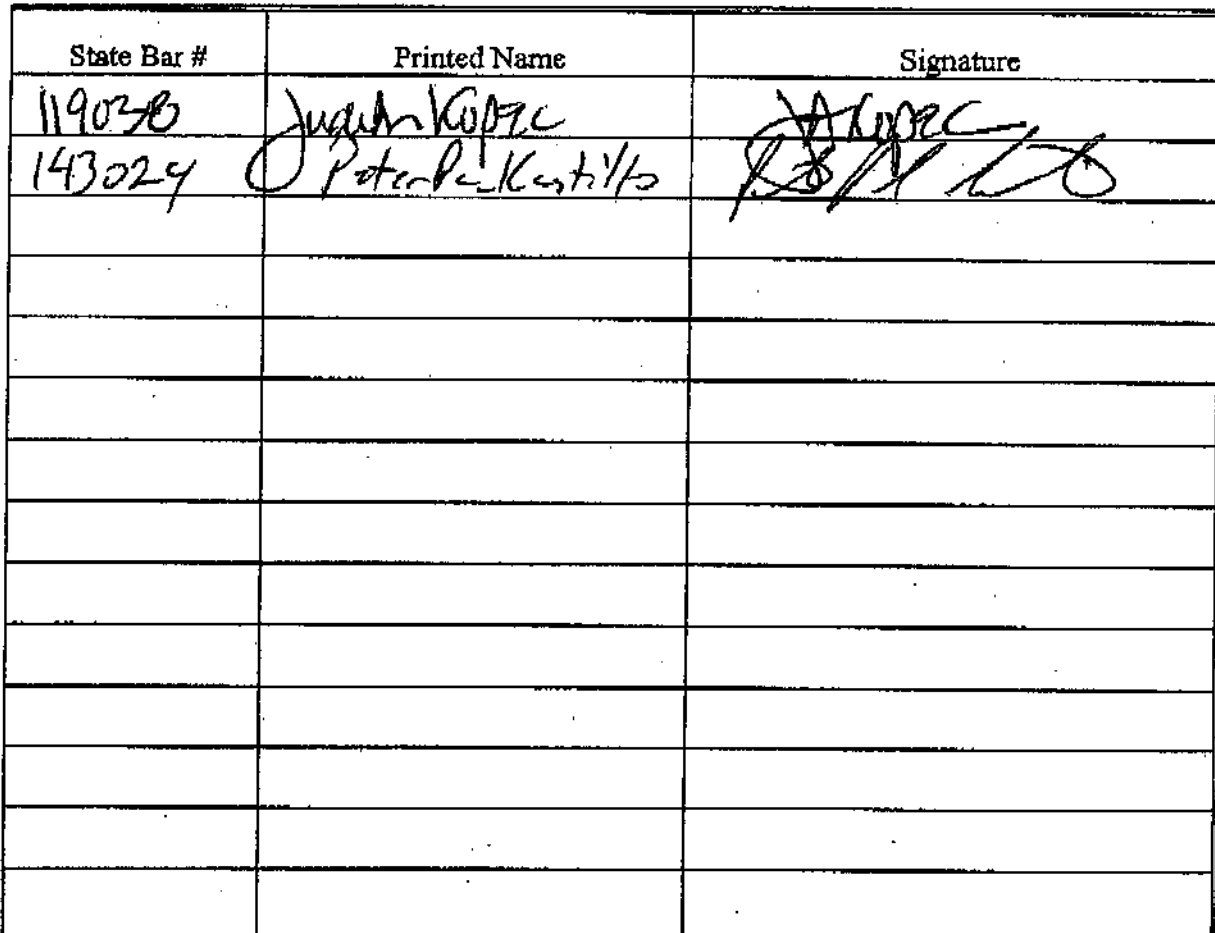 State Bar # Printed Name Signature
119038 Judith Kopec JAKopec
143024 Peter